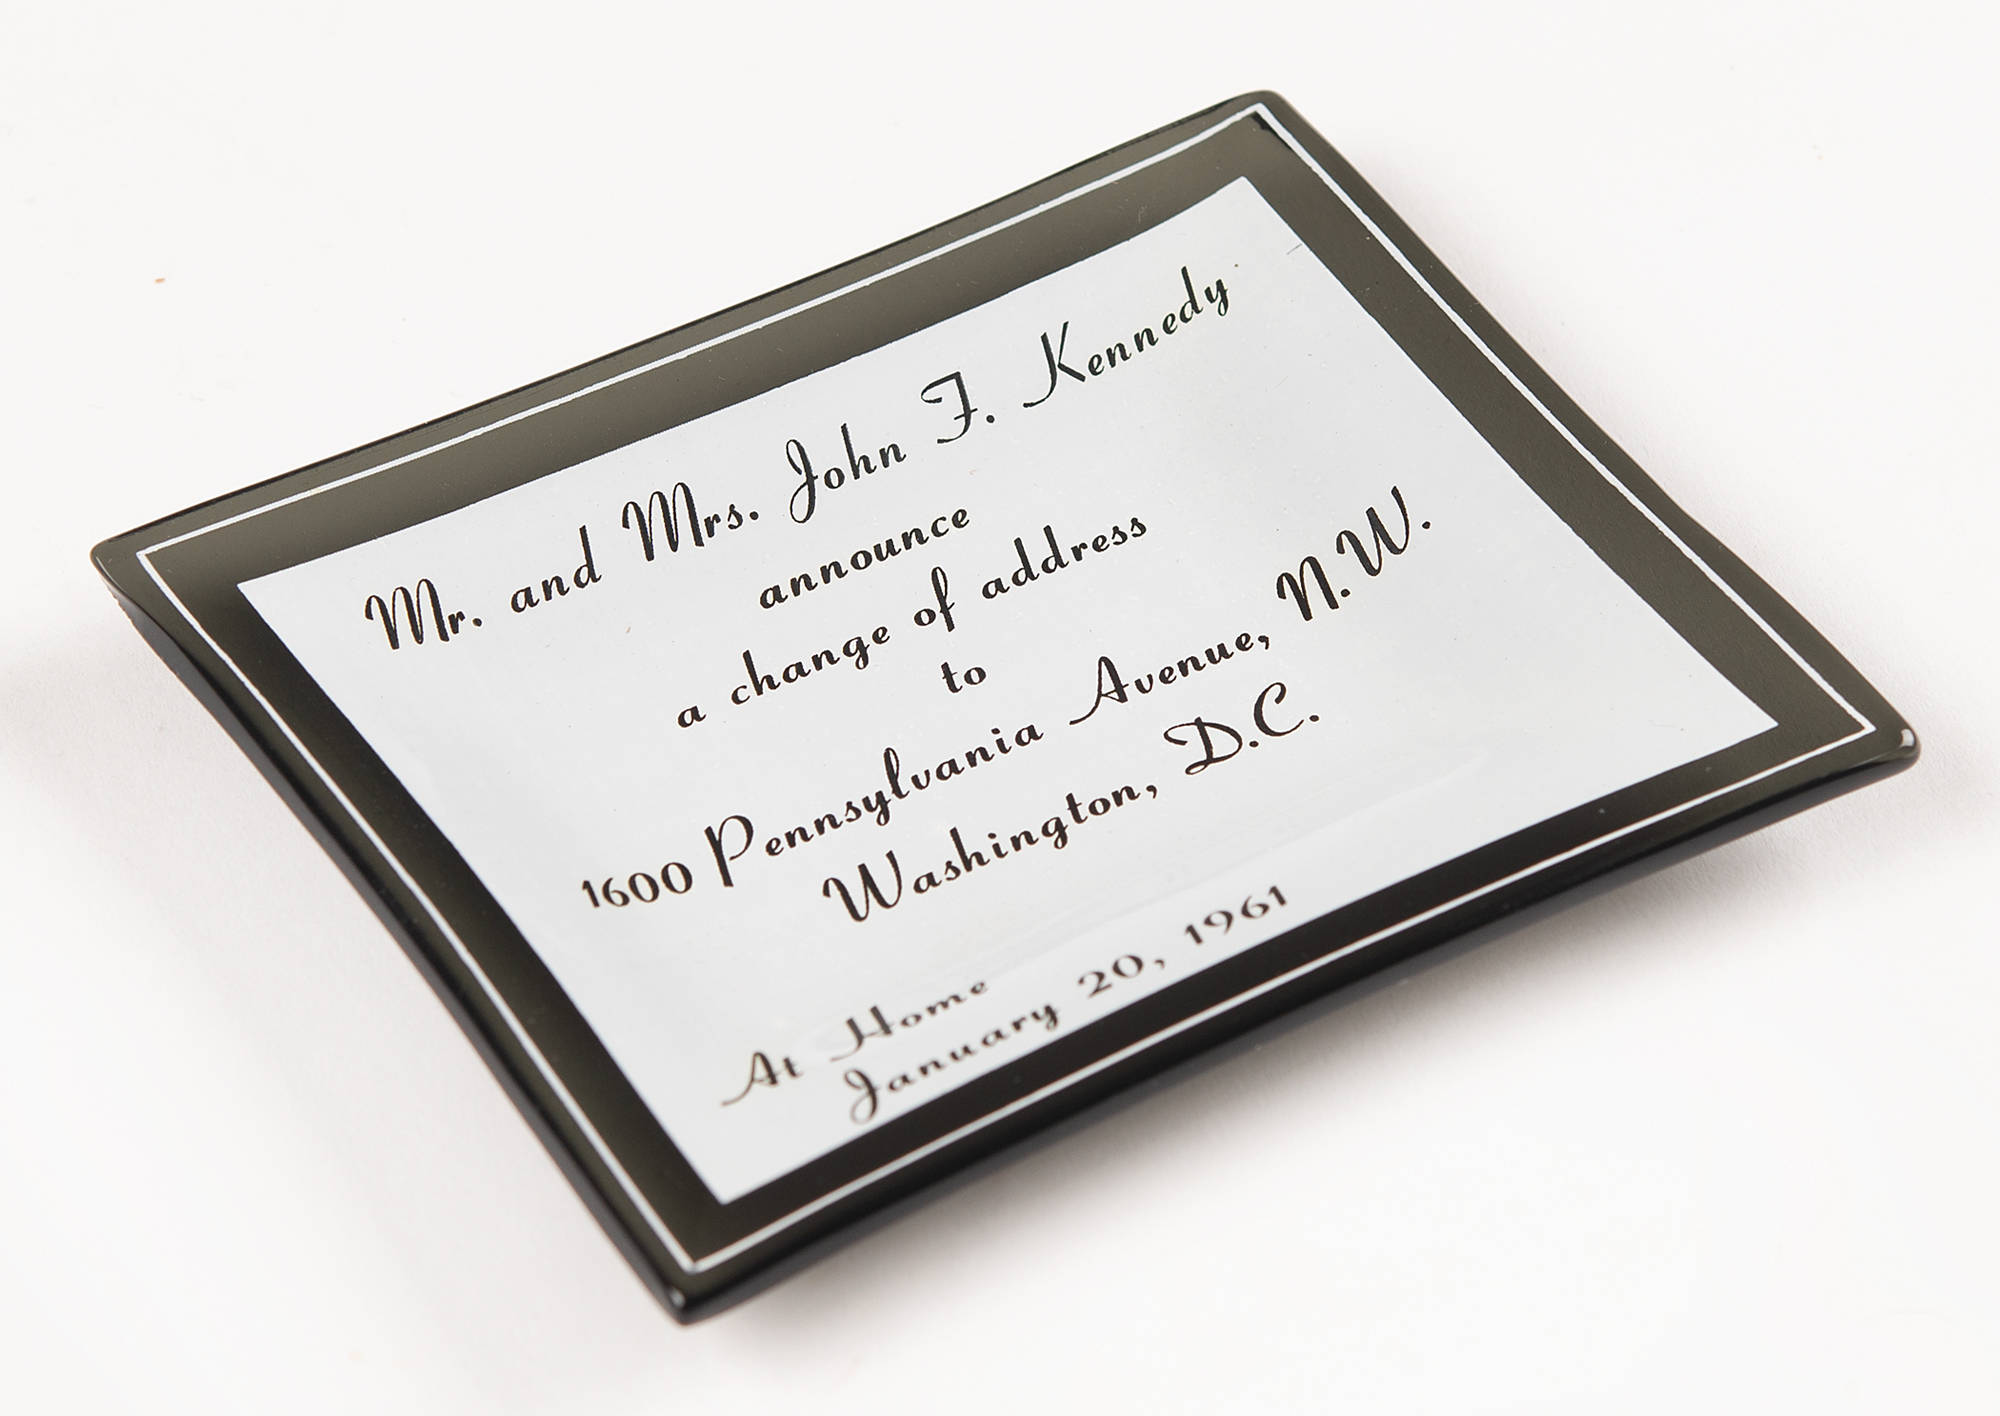 Mr. and Mrs. John F. Kennedy
announce
a change of address
to
1600 Pennsylvania Avenue, N.W.
Washington, D.C.
At Home
January 20, 1961